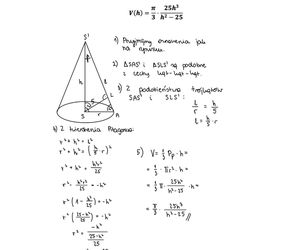 V(h) = π/3 · 25h³/(h² − 25)
1) Przyjmijmy oznaczenia jak na rysunku.
2) ΔSAS' i ΔSLS' są podobne
z cechy kąt-kąt-kąt.
3) Z podobieństwa trójkątów
SAS' i SLS':
l/r = h/5
l = h/5 · r
S'
h
l
L
5
S
r
A
4) Z twierdzenia Pitagorasa:
r² + h² = l²
r² + h² = (h/5 · r)²
r² + h² = h²r²/25
r² − h²r²/25 = −h²
r² (1 − h²/25) = −h²
r² (25−h²/25) = −h²
r² = −h²/(25−h²/25)
5) V = 1/3 Pp · h =
= 1/3 πr² · h =
= 1/3 π · 25h²/(h²−25) · h =
= π/3 · 25h³/(h²−25)